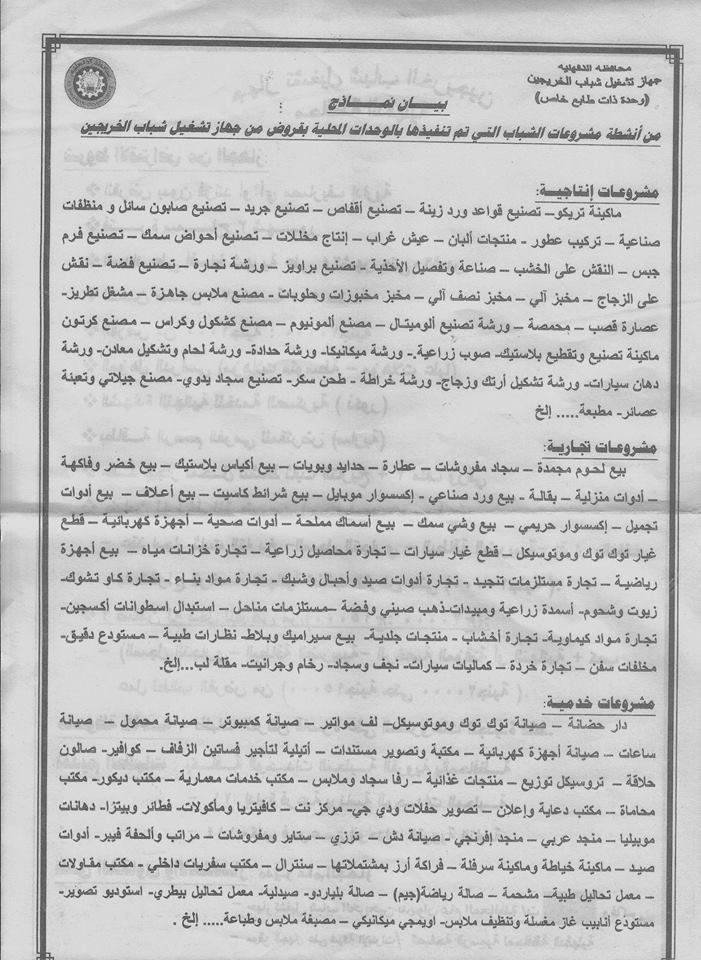 محافظة الدقهلية
جهاز تشغيل شباب الخريجين
(وحدة ذات طابع خاص)
بيـــان نمـــاذج
من أنشطة مشروعات الشباب التي تم تنفيذها بالوحدات المحلية بقروض من جهاز تشغيل شباب الخريجين
مشروعـات إنتاجيـة:
ماكينة تريكو– تصنيع قواعد ورد زينة – تصنيع أقفاص – تصنيع جريد – تصنيع صابون سائل و منظفات
صناعية – تركيب عطور - منتجات ألبان – عيش غراب – إنتاج مخللات – تصنيع أحواض سمك – تصنيع فرم
جبس – النقش على الخشب – صناعة وتفصيل الأحذية - تصنيع براويز – ورشة نجارة – تصنيع فضة – نقش
على الزجاج – مخبز آلي – مخبز نصف آلي – مخبز مخبوزات وحلويات - مصنع ملابس جاهزة – مشغل تطريز-
عصارة قصب – محمصة – ورشة تصنيع ألوميتال – مصنع ألمونيوم – مصنع كشكول وكراس – مصنع كرتون
ماكينة تصنيع وتقطيع بلاستيك- صوب زراعية.- ورشة ميكانيكا- ورشة حدادة- ورشة لحام وتشكيل معادن- ورشة
دهان سيارات- ورشة تشكيل أرتك وزجاج- ورشة خراطة - طحن سكر- تصنيع سجاد يدوي- مصنع جيلاتي وتعبئة
عصائر- مطبعة..... إلخ
مشروعـات تجارية:
بيع لحوم مجمدة – سجاد مفروشات – عطارة – حدايد وبويات – بيع أكياس بلاستيك – بيع خضر وفاكهة
– أدوات منزلية – بقالة - بيع ورد صناعي – إكسسوار موبايل – بيع شرائط كاسيت – بيع أعلاف – بيع أدوات
تجميل – إكسسوار حريمي – بيع وشي سمك – بيع أسماك مملحة – أدوات صحية – أجهزة كهربائية – قطع
غيار توك توك وموتوسيكل – قطع غيار سيارات – تجارة محاصيل زراعية – تجارة خزانات مياه – بيع أجهزة
رياضية – تجارة مستلزمات تنجيد - تجارة أدوات صيد وأحبال وشبك - تجارة مواد بناء - تجارة كاو تشوك-
زيوت وشحوم- أسمدة زراعية ومبيدات-ذهب صيني وفضة –مستلزمات مناحل – استبدال اسطوانات أكسجين-
تجارة مواد كيماوية- تجارة أخشاب - منتجات جلدية- بيع سيراميك وبلاط- نظارات طبية – مستودع دقيق-
مخلفات سفن – تجارة خردة – كماليات سيارات- نجف وسجاد- رخام وجرانيت- مقلة لب...إلخ.
مشروعـات خدمية:
دار حضانة – صيانة توك توك وموتوسيكل- لف مواتير – صيانة كمبيوتر – صيانة محمول – صيانة
ساعات – صيانة أجهزة كهربائية – مكتبة وتصوير مستندات – أتيلية لتأجير فساتين الزفاف – كوافير- صالون
حلاقة – تروسيكل توزيع – منتجات غذائية – رفا سجاد وملابس – مكتب خدمات معمارية – مكتب ديكور- مكتب
محاماة – مكتب دعاية وإعلان – تصوير حفلات ودي جي- مركز نت – كافيتريا ومأكولات- فطائر وبيتزا- دهانات
موبيليا – منجد عربي – منجد إفرنجي - صيانة دش – ترزي – ستاير ومفروشات – مراتب وألحفة فيبر- أدوات
صيد – ماكينة خياطة وماكينة سرفلة – فراكة أرز بمشتملاتها – سنترال – مكتب سفريات داخلي - مكتب مقاولات
– معمل تحاليل طبية- مشحمة – صالة رياضة(جيم) – صالة بلياردو- صيدلية- معمل تحاليل بيطري- استوديو تصوير-
مستودع أنابيب غاز مغسلة وتنظيف ملابس- اويمجي ميكانيكي – مصبغة ملابس وطباعة..... إلخ .